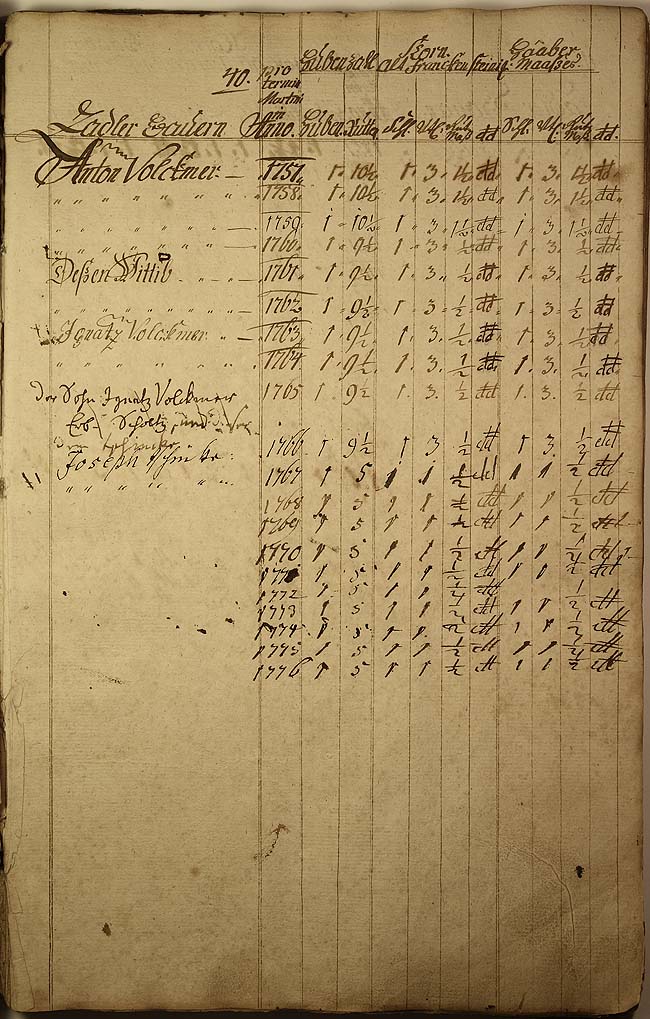 40. Pro termin Martini in Anno.
Hubenzahl Korn. Haaber
alt Franckensteinis: Maasses.
Zadler Bauern Huben. Rutten Schl. Vtl. dd Schl. Vtl. dd.
Anton Volckmer. 1757. 1. 10½ 1. 3. 1½ dd 1. 3. 1½ dd
" " " " " " 1758. 1. 10½ 1. 3. 1½ dd 1. 3. 1½ dd
" " " " " " 1759. 1. 10½ 1. 3. 1½ dd 1. 3. 1½ dd
" " " " " " 1760. 1. 9½ 1. 3. ½ dd 1. 3. ½ dd
Deßen Wittib 1761. 1. 9½ 1. 3. ½ dd 1. 3. ½ dd
" " " " " " 1762. 1. 9½ 1. 3. ½ dd 1. 3. ½ dd
Ignatz Volckmer 1763. 1. 9½ 1. 3. ½ dd 1. 3. ½ dd
" " " " " " 1764. 1. 9½ 1. 3. ½ dd 1. 3. ½ dd
Der Sohn Ignatz Volckmer 1765 1. 9½ 1. 3. ½ dd 1. 3. ½ dd
Erb Scholtz, und
1766 1 9½ 1 3 ½ dd 1 3 ½ dd
Joseph
" " " " " 1767 1 5 1 1 ½ dd 1 1 ½ dd
1768 1 5 1 1 ½ dd 1 1 ½ dd
1769 1 5 1 1 ½ dd 1 1 ½ dd
1770 1 5 1 1 ½ dd 1 1 ½ dd
1771 1 5 1 1 ½ dd 1 1 ½ dd
1772 1 5 1 1 ½ dd ½
1773 1 5 1 1 ½ dd 1 1 ½ dd
1774 1 5 1 1 ½ dd 1 1 ½ dd
1775 1 5 1 1 ½ dd 1 1 ½ dd
1776 1 5 1 1 ½ dd 1 1 ½ dd